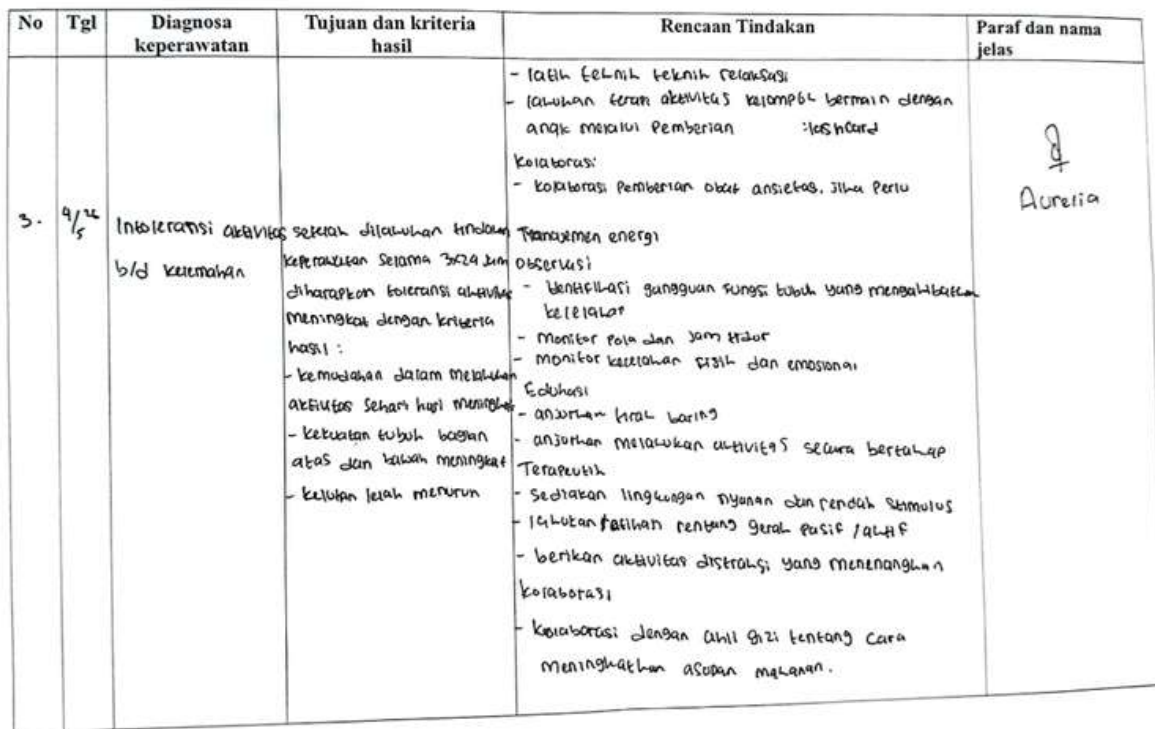 No Tgl Diagnosa keperawatan Tujuan dan kriteria hasil Rencaan Tindakan Paraf dan nama jelas
- latih teknik teknik relaksasi
- lakukan terapi aktivitas kelompok bermain dengan
anak melalui Pemberian :lashcard
Kolaborasi
- kolaborasi Pemberian obat ansietas, Jika Perlu
Aurelia
3. 4/5 26
Intoleransi aktivitas
b/d kelemahan
setelah dilakukan tindakan
keperawatan selama 3x24 Jam
diharapkan toleransi aktivitas
meningkat dengan kriteria
hasil :
- kemudahan dalam melakukan
aktivitas Sehari hari meningkat
- kekuatan tubuh bagian
atas dan bawah meningkat
- keluhan lelah menurun
Manajemen energi
Observasi
- Identifikasi gangguan fungsi tubuh yang mengakibatkan
kelelahan
- Monitor Pola dan Jam tidur
- monitor kelelahan fisik dan emosional
Edukasi
- anjurkan tirah baring
- anjurkan melakukan aktivitas secara bertahap
Terapeutik
- Sediakan lingkungan nyaman dan rendah Stimulus
- lakukan latihan rentang gerak pasif /aktif
- berikan aktivitas distraksi yang menenangkan
kolaborasi
- Kolaborasi dengan ahli gizi tentang cara
meningkatkan asupan makanan.